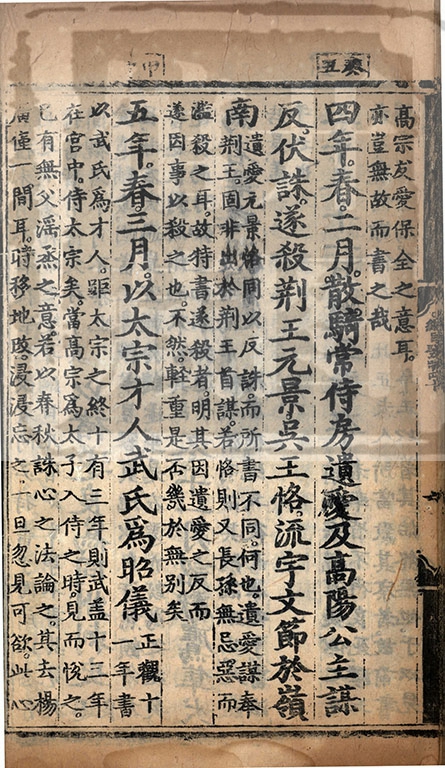 癸丑
甲
高宗友愛保全之意耳
亦豈無故而書之哉
四年。春。二月。散騎常侍房遺愛及高陽公主謀
反。伏誅。遂殺荆王元景吳王恪。流宇文節於嶺
南
遺愛元景恪同以反誅。而所書不同。何也。遺愛謀奉
荆王。固非出於荆王首謀。若恪則又長孫無忌惡而
濫殺之耳。故特書遂殺者。明其因遺愛之反而
遂因事以殺之也。不然。輕重是否幾於無別矣
五年。春。三月。以太宗才人武氏爲昭儀
正觀十
一年書
以武氏爲才人。距太宗之終十有三年。則武蓋十三年
在宮中。侍太宗矣。當高宗爲太子入侍之時。見而悅之。
已有無父滛烝之意。若以春秋誅心之法論之。其去楊
廣僅一間耳。時移地改。浸浸忘之。一旦忽見可欲。此心